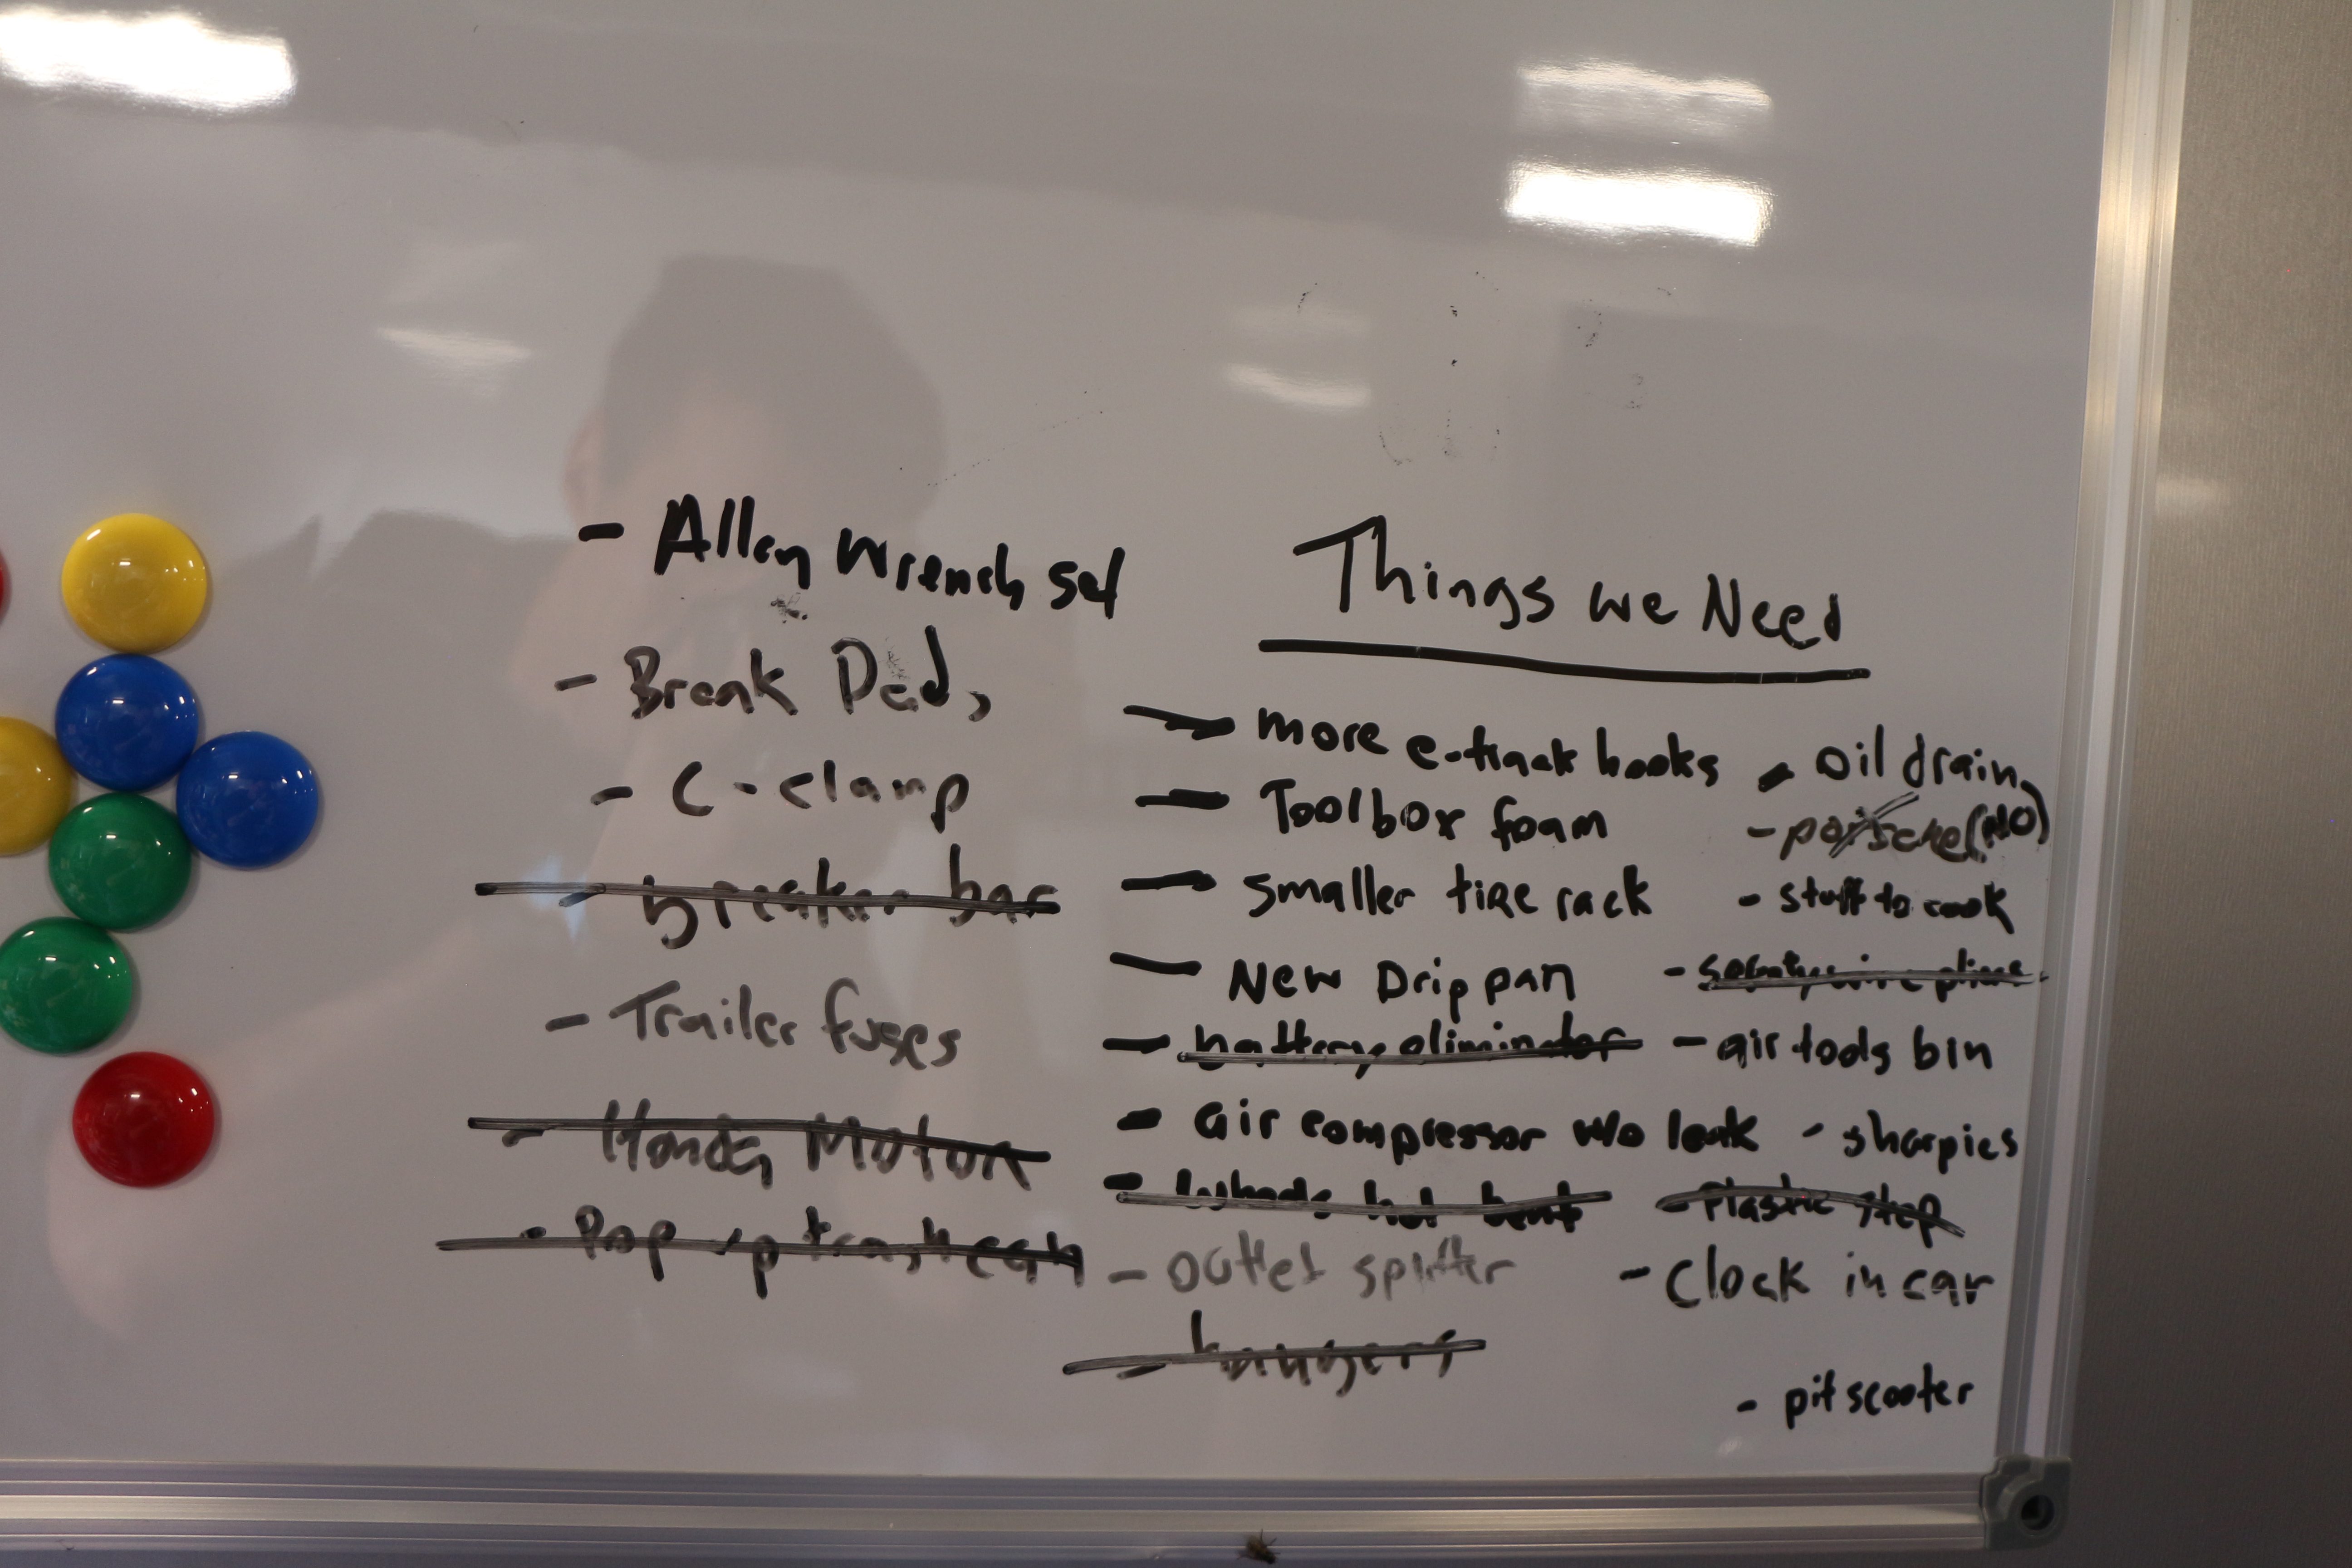 Things we Need
- Allen Wrench set
- Break Pads
- C-clamp
- breaker bar
- Trailer fuses
- Honda Motor
- Pop up trash can
- more e-track hooks
- Toolbox foam
- smaller tire rack
- New Drip pan
- battery eliminator
- air compressor w/o leak
- wheels not bent
- outlet splitter
- hangers
- oil drain
- porsche (NO)
- stuff to cook
- safety wire pliers
- air tools bin
- sharpies
- Plastic step
- Clock in car
- pit scooter